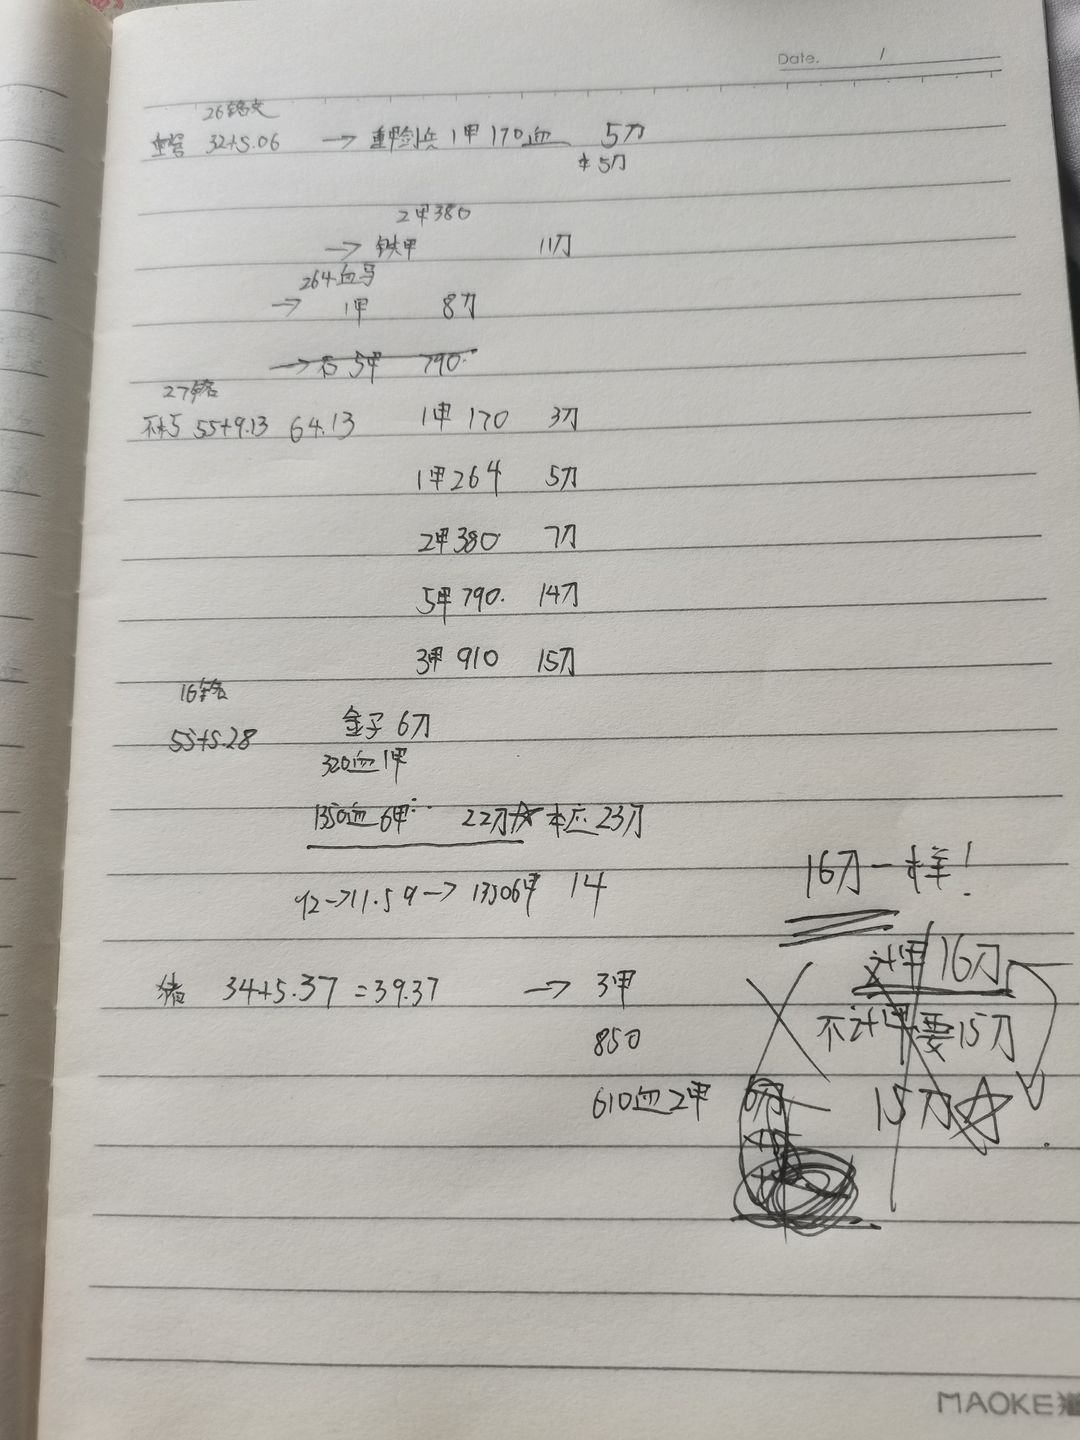 Date. /
26铭文
重弩 32+5.06 → 重甲剑兵 1甲 170血 5刀
本5刀
2甲380
→ 铁甲 11刀
264血马
→ 1甲 8刀
→ 石 5甲 790.
27铭
55+9.13 64.13 1甲 170 3刀
1甲264 5刀
2甲380 7刀
5甲790. 14刀
3甲 910 15刀
16铭
55+5.28 金子 6刀
320血1甲
1350血6甲 22刀☆ 本应23刀
16刀一样!
92→11.59→ 13506甲 14
计甲 16刀
猪 34+5.37=39.37 → 3甲
不计甲要15刀
850
610血2甲 15刀☆
MAOKE